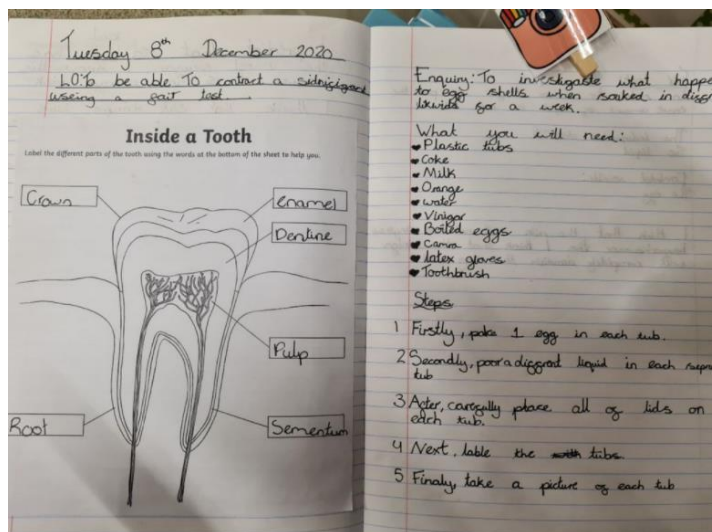 Tuesday 8th December 2020
LO: To be able To contract a
useing a fait test.
Inside a Tooth
Label the different parts of the tooth using the words at the bottom of the sheet to help you.
Crown
enamel
Dentine
Pulp
Root
Sementum
Enquiry: To investigaste what happe
to egg shells when soaked in diff
liwids for a week.
What you will need:
Plastic tubs
Coke
Milk
Orange
water
Vinigar
Boiled eggs
Camra
latex gloves
Toothbrush
Steps
1 Firstly, poke 1 egg in each tub.
2 Secondly, poor a diffrent liquid in each
tub
3 Acter, carefully place all of lids on
each tub.
4 Next, lable the tubs
5 Finaly, take a picture of each tub